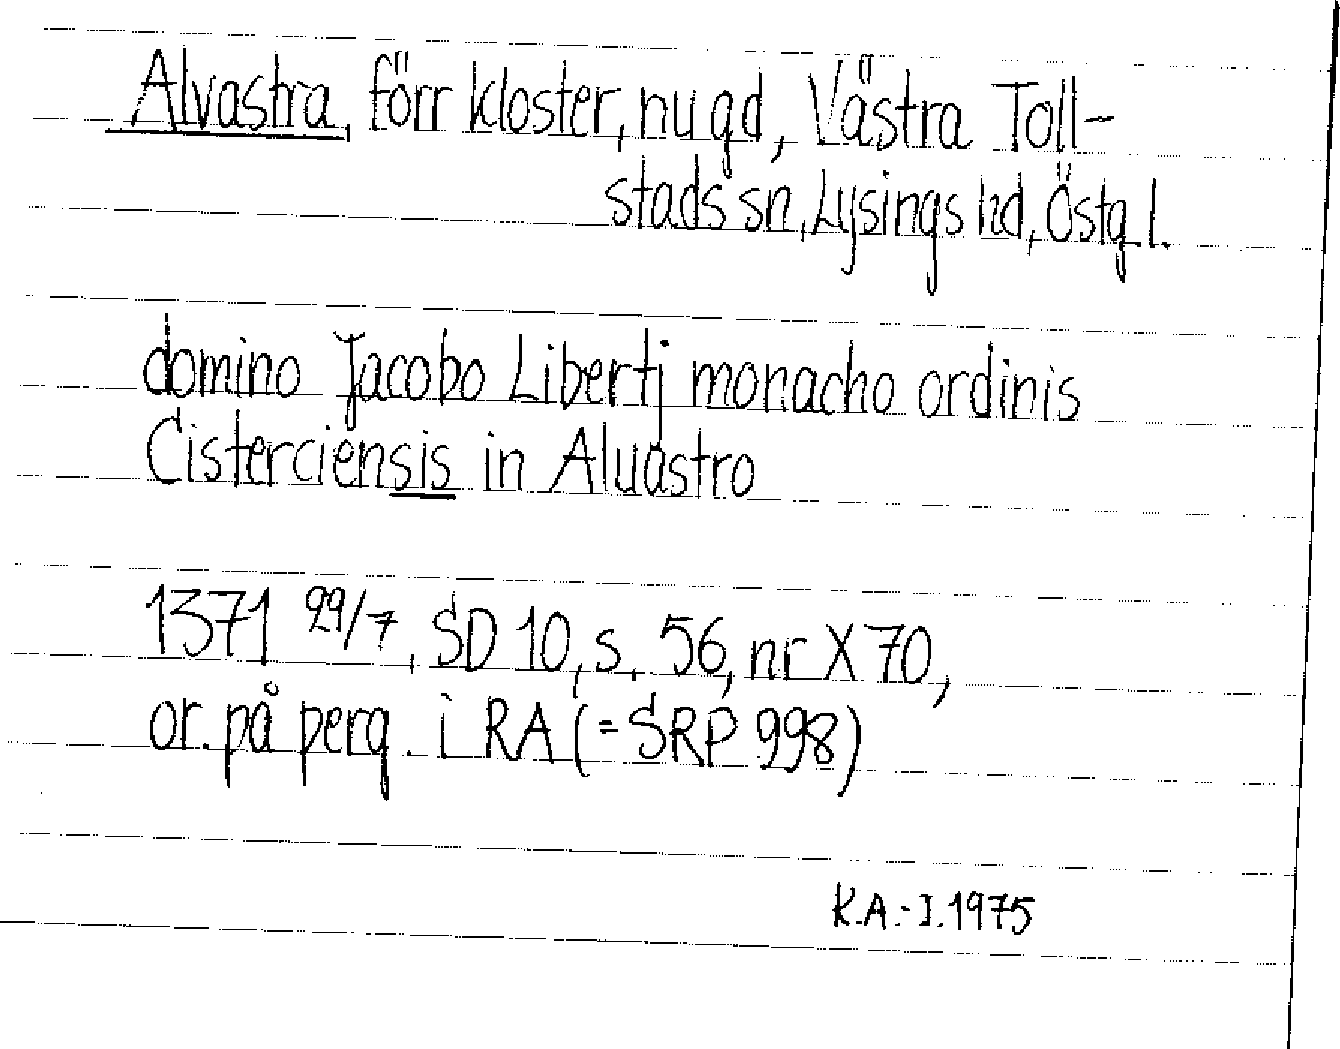 Alvastra, förr kloster, nu gd, Västra Toll-
stads sn, Lysings hd, Östg l.
domino Jacobo Libertj monacho ordinis
Cisterciensis in Aluastro
1371 29/7, SD 10, s. 56, nr X 70,
or. på perg. i RA (= SRP 998)
K.A.-I. 1975